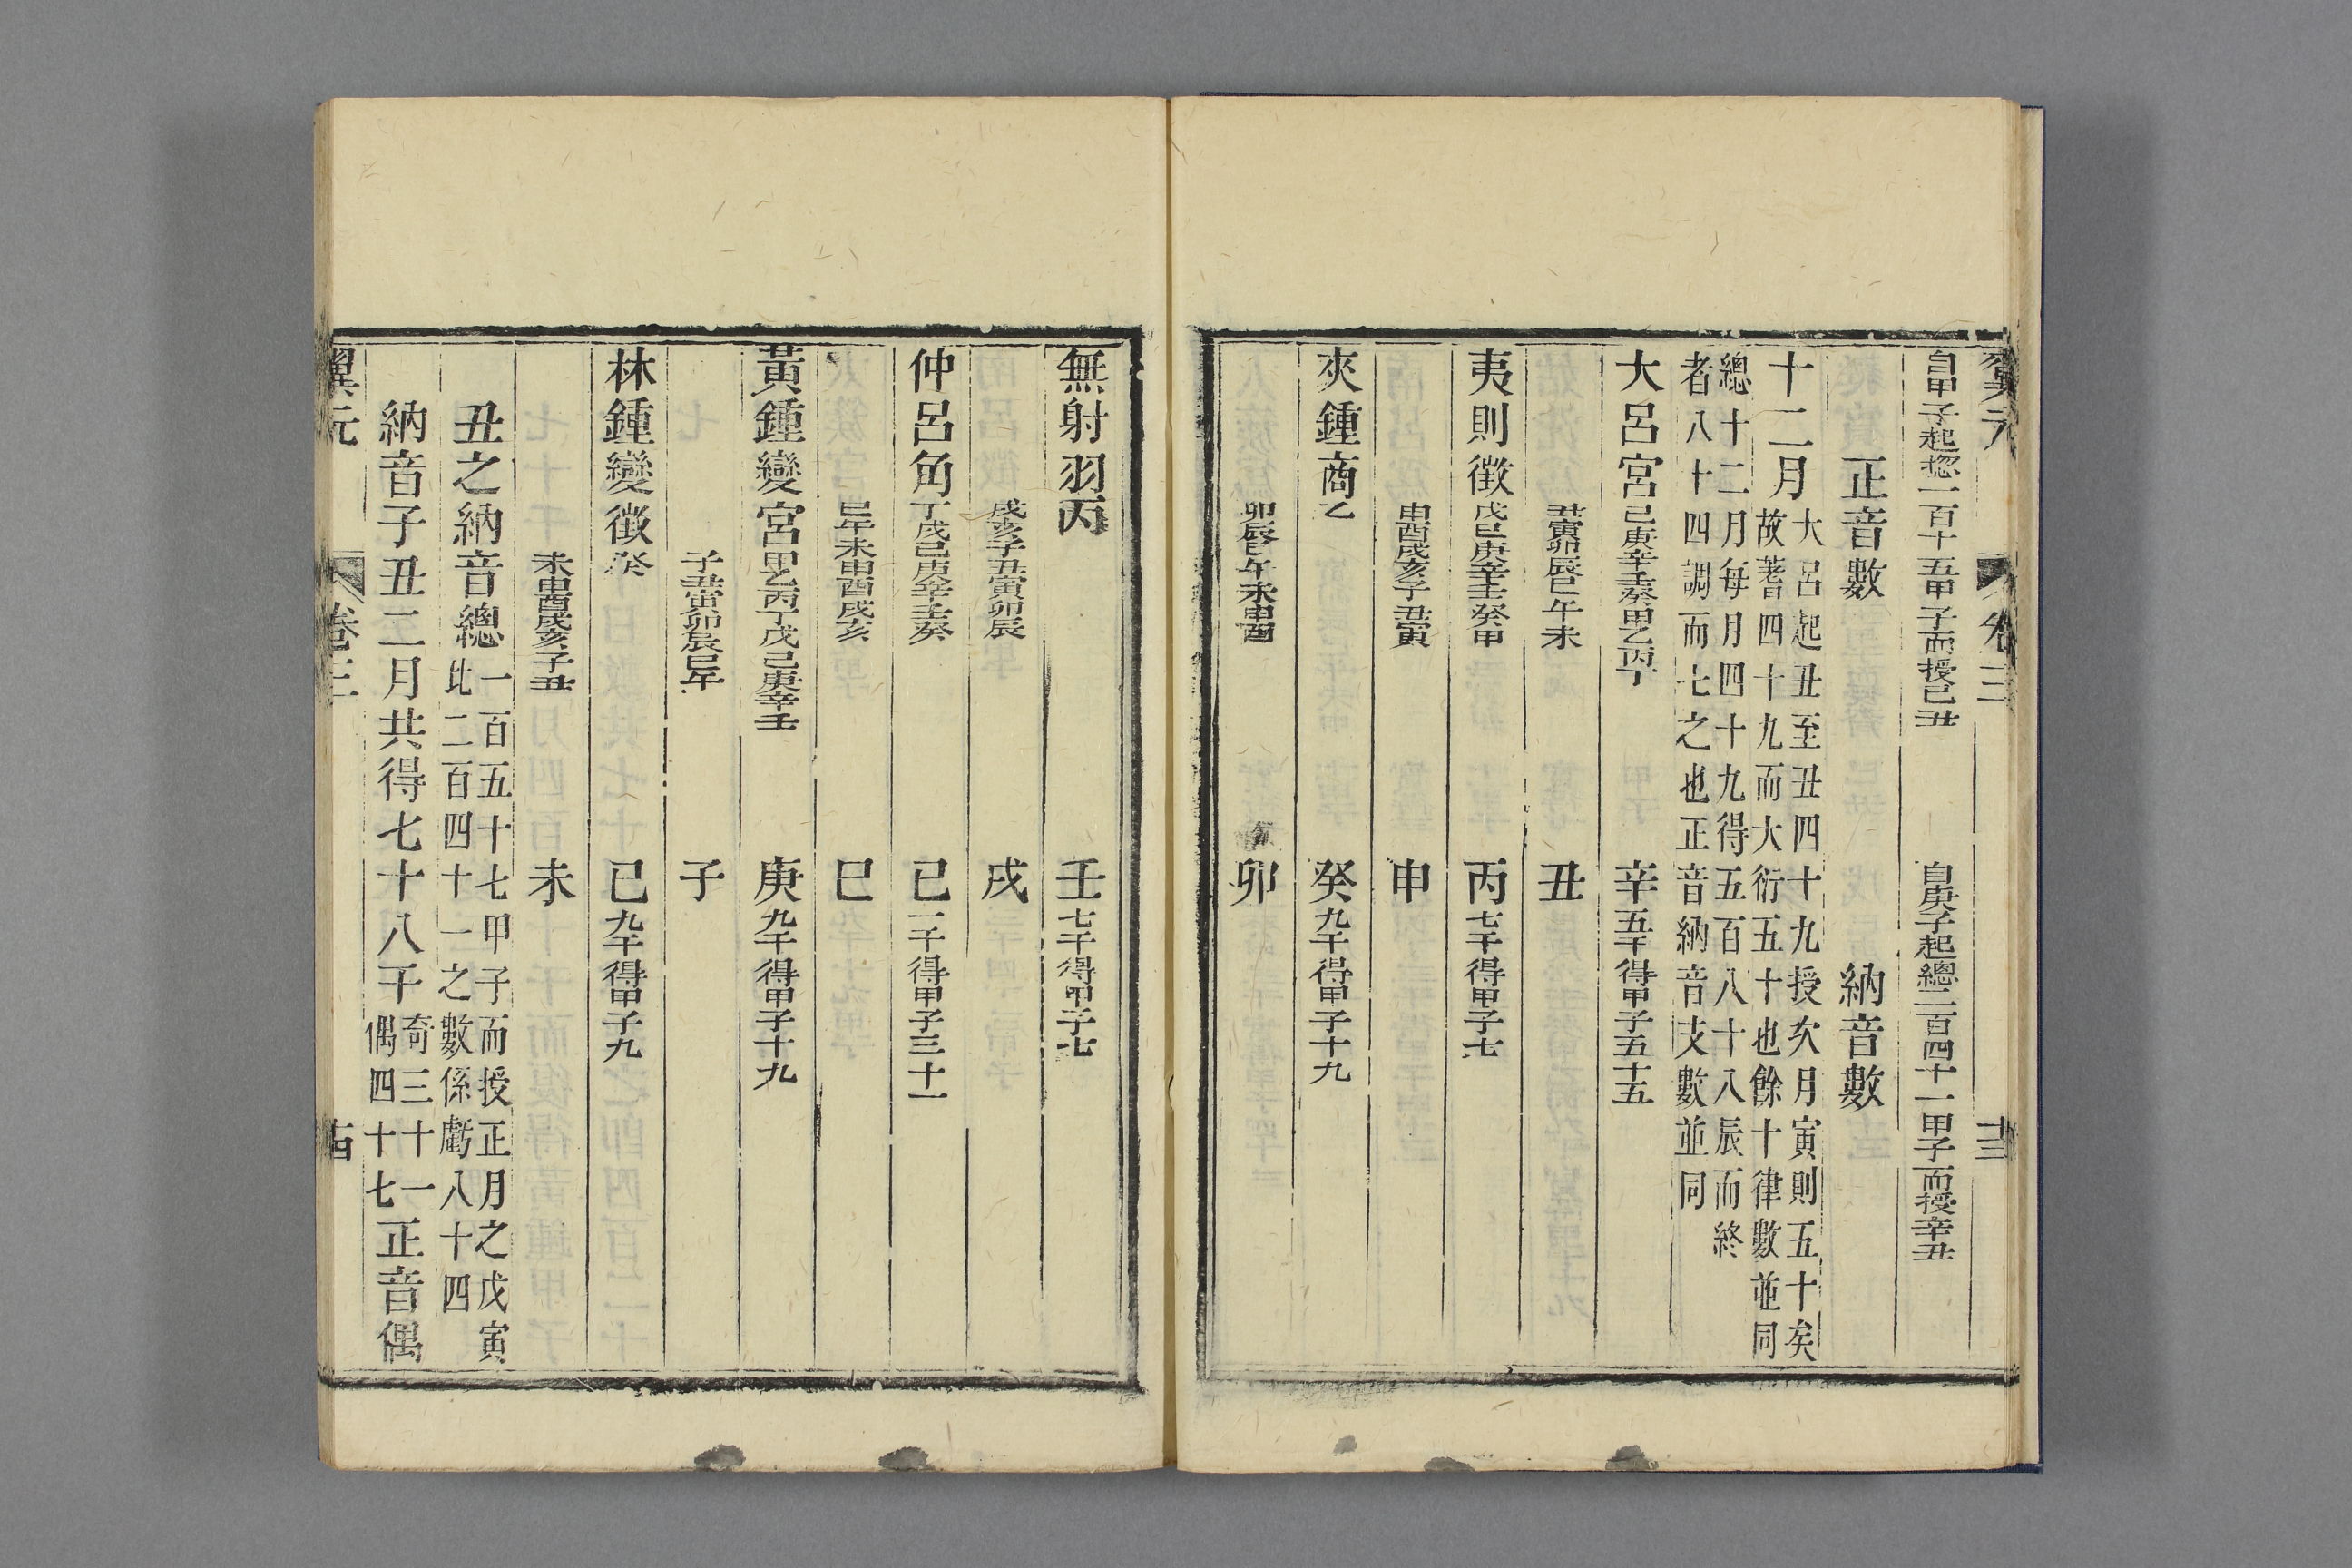 翼元 卷三 十三
自甲子起揔一百十五甲子而授己丑 自庚子起總二百四十一甲子而授辛丑
正音數 納音數
十二月
大呂起丑至丑四十九授次月寅則五十矣
故蓍四十九而大衍五十也餘十律數並同
總十二月每月四十九得五百八十八辰而終
者八十四調而七之也正音納音支數並同
大呂宮己庚辛壬癸甲乙丙丁 辛五千得甲子五十五
丑寅卯辰巳午未 丑
夷則徵戊己庚辛壬癸甲 丙七千得甲子七
申酉戌亥子丑寅 申
夾鍾商乙 癸九千得甲子十九
卯辰巳午未申酉 卯
無射羽丙 壬七千得甲子七
戌亥子丑寅卯辰 戌
仲呂角丁戊己庚辛壬癸 己一千得甲子三十一
巳午未申酉戌亥 巳
黃鍾變宮甲乙丙丁戊己庚辛壬 庚九千得甲子十九
子丑寅卯辰巳午 子
林鍾變徵癸 己九千得甲子九
未申酉戌亥子丑 未
丑之納音總
一百五十七甲子而授正月之戊寅
比二百四十一之數係虧八十四
納音子丑二月共得七十八千
奇三十一
偶四十七
正音偶
翼元 卷三 古